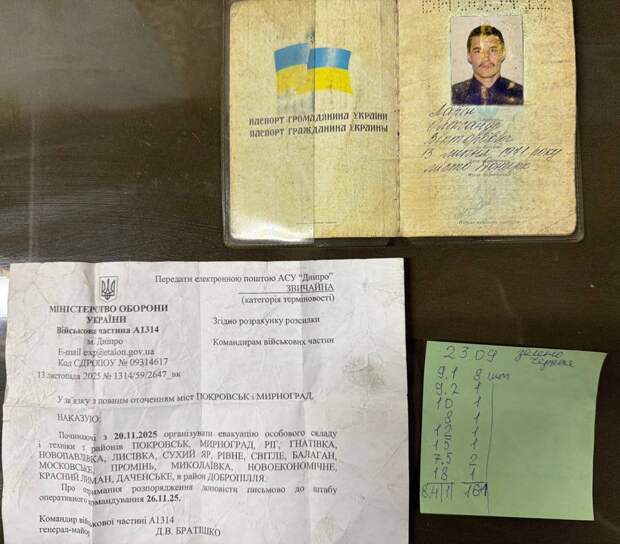 ПАСПОРТ ГРОМАДЯНИНА УКРАЇНИ
ПАСПОРТ ГРАЖДАНИНА УКРАИНЫ
Олександр
Вікторович
13
1971 року
місто
Передати електронною поштою АСУ “Дніпро”
ЗВИЧАЙНА
(категорія терміновості)
МІНІСТЕРСТВО ОБОРОНИ
УКРАЇНИ
Військова частина А1314
м. Дніпро
E-mail exp@etalon.gov.ua
Код ЄДРПОУ № 09314617
13 листопада 2025 № 1314/59/2647_вк
Згідно розрахунку розсилки
Командирам військових частин
У зв'язку з повним оточенням міст ПОКРОВСЬК і МИРНОГРАД,
НАКАЗУЮ:
Починаючи з 20.11.2025 організувати евакуацію особового складу
і техніки з районів ПОКРОВСЬК, МИРНОГРАД, РІГ, ГНАТІВКА,
НОВОПАВЛІВКА, ЛИСІВКА, СУХИЙ ЯР, РІВНЕ, СВІТЛЕ, БАЛАГАН,
МОСКОВСЬКЕ, ПРОМІНЬ, МИКОЛАЇВКА, НОВОЕКОНОМІЧНЕ,
КРАСНИЙ ЛИМАН, ДАЧЕНСЬКЕ, в район ДОБРОПІЛЛЯ.
Про отримання розпорядження доповісти письмово до штабу
оперативного командування 26.11.25.
Командир військової частини А1314
генерал-майор
Д.В. БРАТІШКО
23.09 зелено
9.1 8 шт
9.2 1
10 1
8 1
1
15 1
7.5 2
18 1